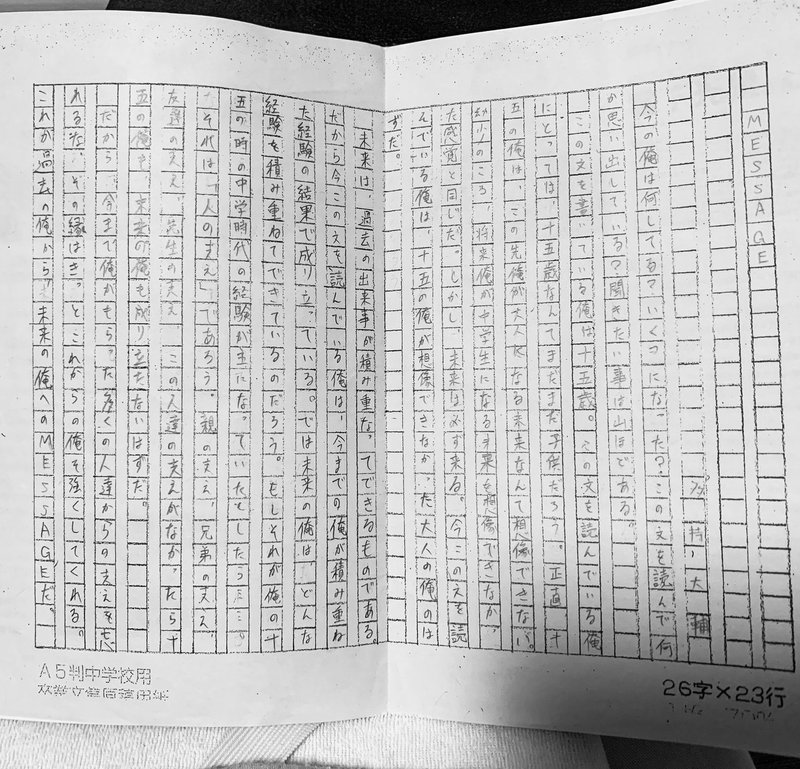 MESSAGE
持 大輔
今の俺は何してる？いくつになった？この文を読んで何
か思い出している？聞きたい事は山ほどある。
この文を書いている俺は十五歳。この文を読んでいる俺
にとっては、十五歳なんてまだまだ子供だろう。正直、十
五の俺は、この先俺が大人になる未来なんて想像できない。
幼少のころ、将来俺が中学生になる未来を想像できなかっ
た感覚と同じだ。しかし、未来は必ず来る。今この文を読
んでいる俺は、十五の俺が想像できなかった大人の俺のは
ずだ。
未来は、過去の出来事が積み重なってできるものである。
だから今この文を読んでいる俺は、今までの俺が積み重ね
た経験の結果で成り立っている。では未来の俺は、どんな
経験を積み重ねてできているのだろう。もしそれが俺の十
五の時の中学時代の経験が主になっていたとしたら……。
それは「人の支え」であろう。親の支え、兄弟の支え、
友達の支え、先生の支え、この人達の支えがなかったら十
五の俺も、未来の俺も成り立たないはずだ。
だから、今まで俺がもらった多くの人達からの支えを忘
れるな。その縁はきっとこれからの俺を強くしてくれる。
これが過去の俺から、未来の俺へのMESSAGEだ。
A5判中学校用
卒業文集原稿用紙
26字×23行